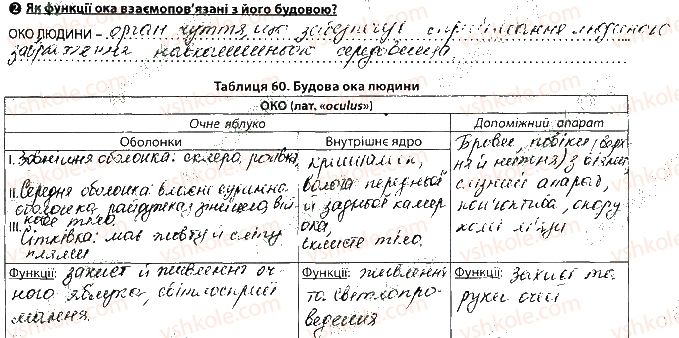 ❷ Як функції ока взаємопов'язані з його будовою?
ОКО ЛЮДИНИ – орган чуття, що забезпечує сприймання людиною
зображення навколишнього середовища
Таблиця 60. Будова ока людини
ОКО (лат. «oculus»)
Очне яблуко
Допоміжний апарат
Оболонки
Внутрішнє ядро
I. Зовнішня оболонка: склера, рогівка
II. Середня оболонка: власне судинна
оболонка, райдужка з зіницею, вій
кове тіло.
III. Сітківка: має жовту й сліпу
плями
кришталик,
волога передньої
й задньої камер
ока,
склисте тіло.
Брови, повіки (верх
ня й нижня) з віями
слізний апарат,
кон'юнктива, окору
хові м'язи
Функції: захист й живлення оч
ного яблука, світлосприй
мання.
Функції: живлення
та світлопро
ведення
Функції: Захист та
рухи очей
vshkole.com